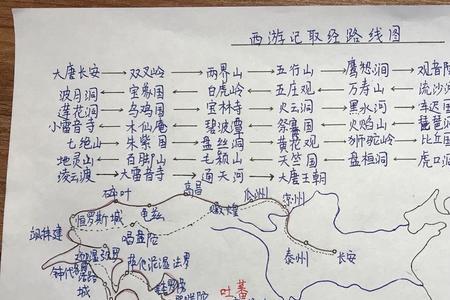 西游记取经路线图
大唐长安 → 双叉岭 → 两界山 → 五行山 → 鹰愁涧 → 观音
波月洞 ← 宝象国 ← 白虎岭 ← 五庄观 ← 万寿山 ← 流沙
莲花洞 → 乌鸡国 → 宝林寺 → 火云洞 → 黑水河 → 车迟国
小雷音寺 ← 木仙庵 ← 碧波潭 ← 祭赛国 ← 火焰山 ← 琵琶
七绝山 → 朱紫国 → 盘丝洞 → 黄花观 → 狮驼岭 → 比丘国
地灵山 ← 百脚山 ← 毛颖山 ← 天竺国 ← 盘桓洞 ← 虎口
凌云渡 → 大雷音寺 → 通天河 → 大唐王朝
碎叶 高昌 瓜州 凉州
怛罗斯城 龟兹 敦煌
飒秣建 唱盘陀 秦州 长安
城
吐蕃